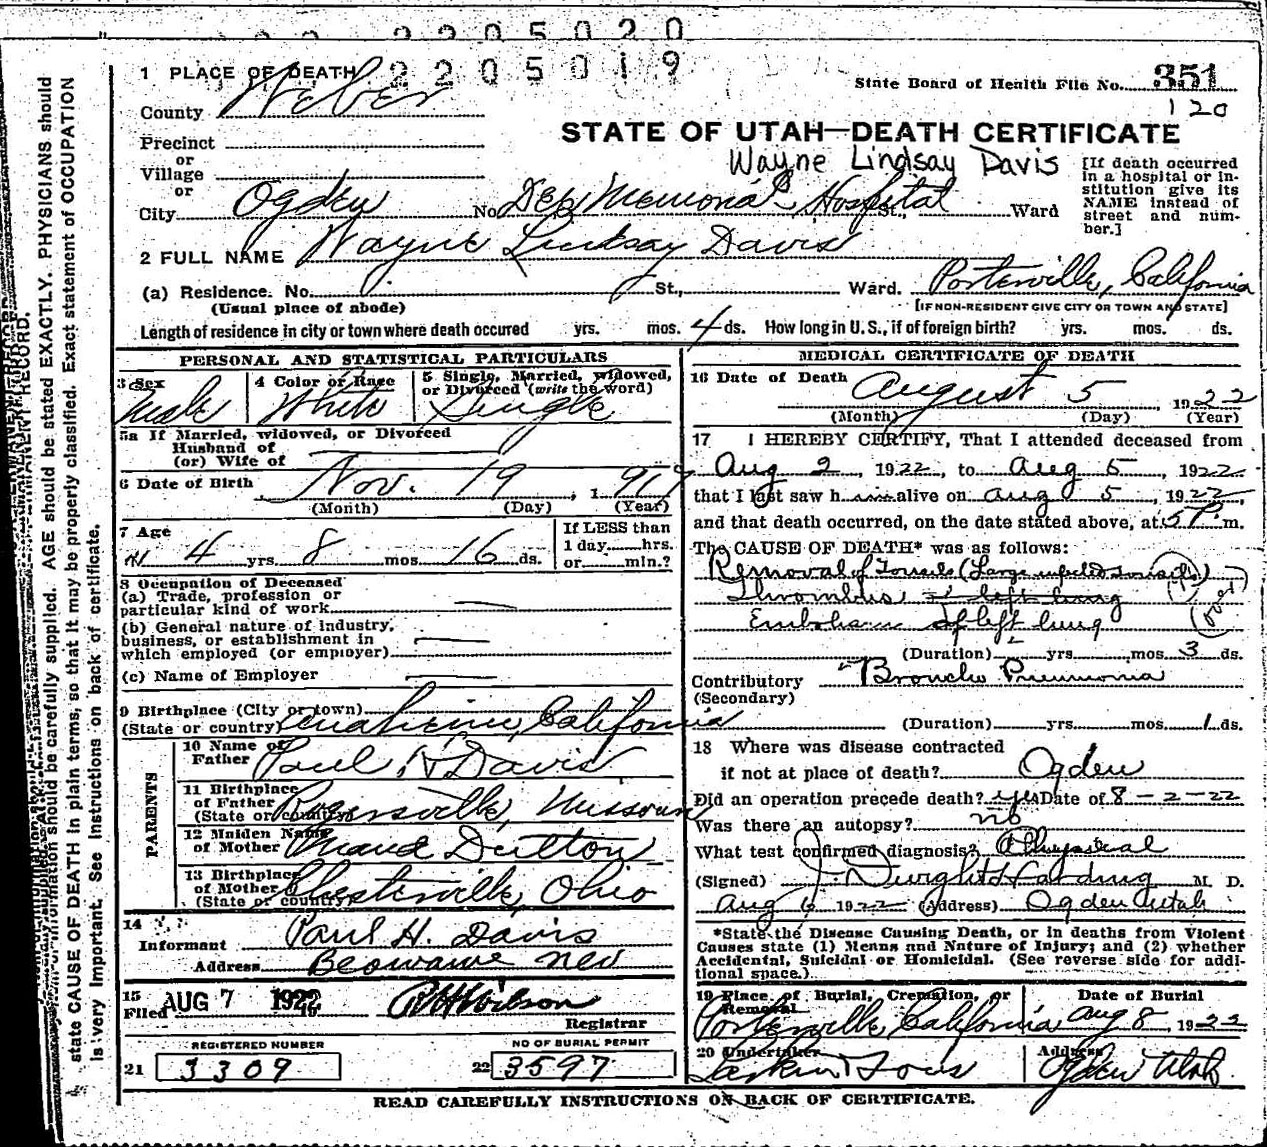 2205020
2205019
1 PLACE OF DEATH
County Weber
State Board of Health File No. 351
120
STATE OF UTAH—DEATH CERTIFICATE
Precinct
or
Village
or
City Ogden No. Dee Memorial Hospital St., Ward
Wayne Lindsay Davis
[If death occurred
in a hospital or in-
stitution give its
NAME instead of
street and num-
ber.]
2 FULL NAME Wayne Lindsay Davis
(a) Residence. No. St., Ward. Porterville, California
(Usual place of abode) [IF NON-RESIDENT GIVE CITY OR TOWN AND STATE]
Length of residence in city or town where death occured yrs. mos. 4 ds. How long in U. S., if of foreign birth? yrs. mos. ds.
PERSONAL AND STATISTICAL PARTICULARS
3 Sex Male
4 Color or Race White
5 Single, Married, widowed,
or Divorced (write the word)
Single
5a If Married, widowed, or Divorced
Husband of
(or) Wife of
6 Date of Birth Nov. 19, 1917
(Month) (Day) (Year)
7 Age
4 yrs. 8 mos. 16 ds.
If LESS than
1 day......hrs.
or......min.?
8 Occupation of Deceased
(a) Trade, profession or
particular kind of work
(b) General nature of industry,
business, or establishment in
which employed (or employer)
(c) Name of Employer
9 Birthplace (City or town)
(State or country) Anaheim, California
PARENTS
10 Name of
Father Paul H Davis
11 Birthplace
of Father
(State or country) Rogersville, Missouri
12 Maiden Name
of Mother Maud Dutton
13 Birthplace
of Mother
(State or country) Chesterville, Ohio
14
Informant Paul H. Davis
Address Beowawe Nev
15
Filed AUG 7 1922 Wilson
Registrar
REGISTERED NUMBER
21 3309
NO OF BURIAL PERMIT
22 3597
MEDICAL CERTIFICATE OF DEATH
16 Date of Death August 5 1922
(Month) (Day) (Year)
17 I HEREBY CERTIFY, That I attended deceased from
Aug 2, 1922, to Aug 5, 1922
that I last saw him alive on Aug 5, 1922,
and that death occurred, on the date stated above, at 5 P m.
The CAUSE OF DEATH* was as follows:
Removal of Tonsils (Large infected tonsils)
Thrombus of left lung
Embolism of left lung
(over)
(Duration) yrs. mos. 3 ds.
Contributory Broncho Pneumonia
(Secondary)
(Duration) yrs. mos. 1 ds.
18 Where was disease contracted
if not at place of death? Ogden
Did an operation precede death? yes Date of 8-2-22
Was there an autopsy? no
What test confirmed diagnosis? Physical
(Signed) J. Dwight Harding M. D.
Aug 6 1922 (Address) Ogden Utah
*State the Disease Causing Death, or in deaths from Violent
Causes state (1) Means and Nature of Injury; and (2) whether
Accidental, Suicidal or Homicidal. (See reverse side for addi-
tional space.)
19 Place of Burial, Cremation, or
Removal
Porterville, California
Date of Burial
Aug 8, 1922
20 Undertaker
Larkin & Sons
Address
Ogden Utah.
READ CAREFULLY INSTRUCTIONS ON BACK OF CERTIFICATE.
should be carefully supplied. AGE should be stated EXACTLY. PHYSICIANS should
state CAUSE OF DEATH in plain terms, so that it may be properly classified. Exact statement of OCCUPATION
is very Important. See Instructions on back of certificate.